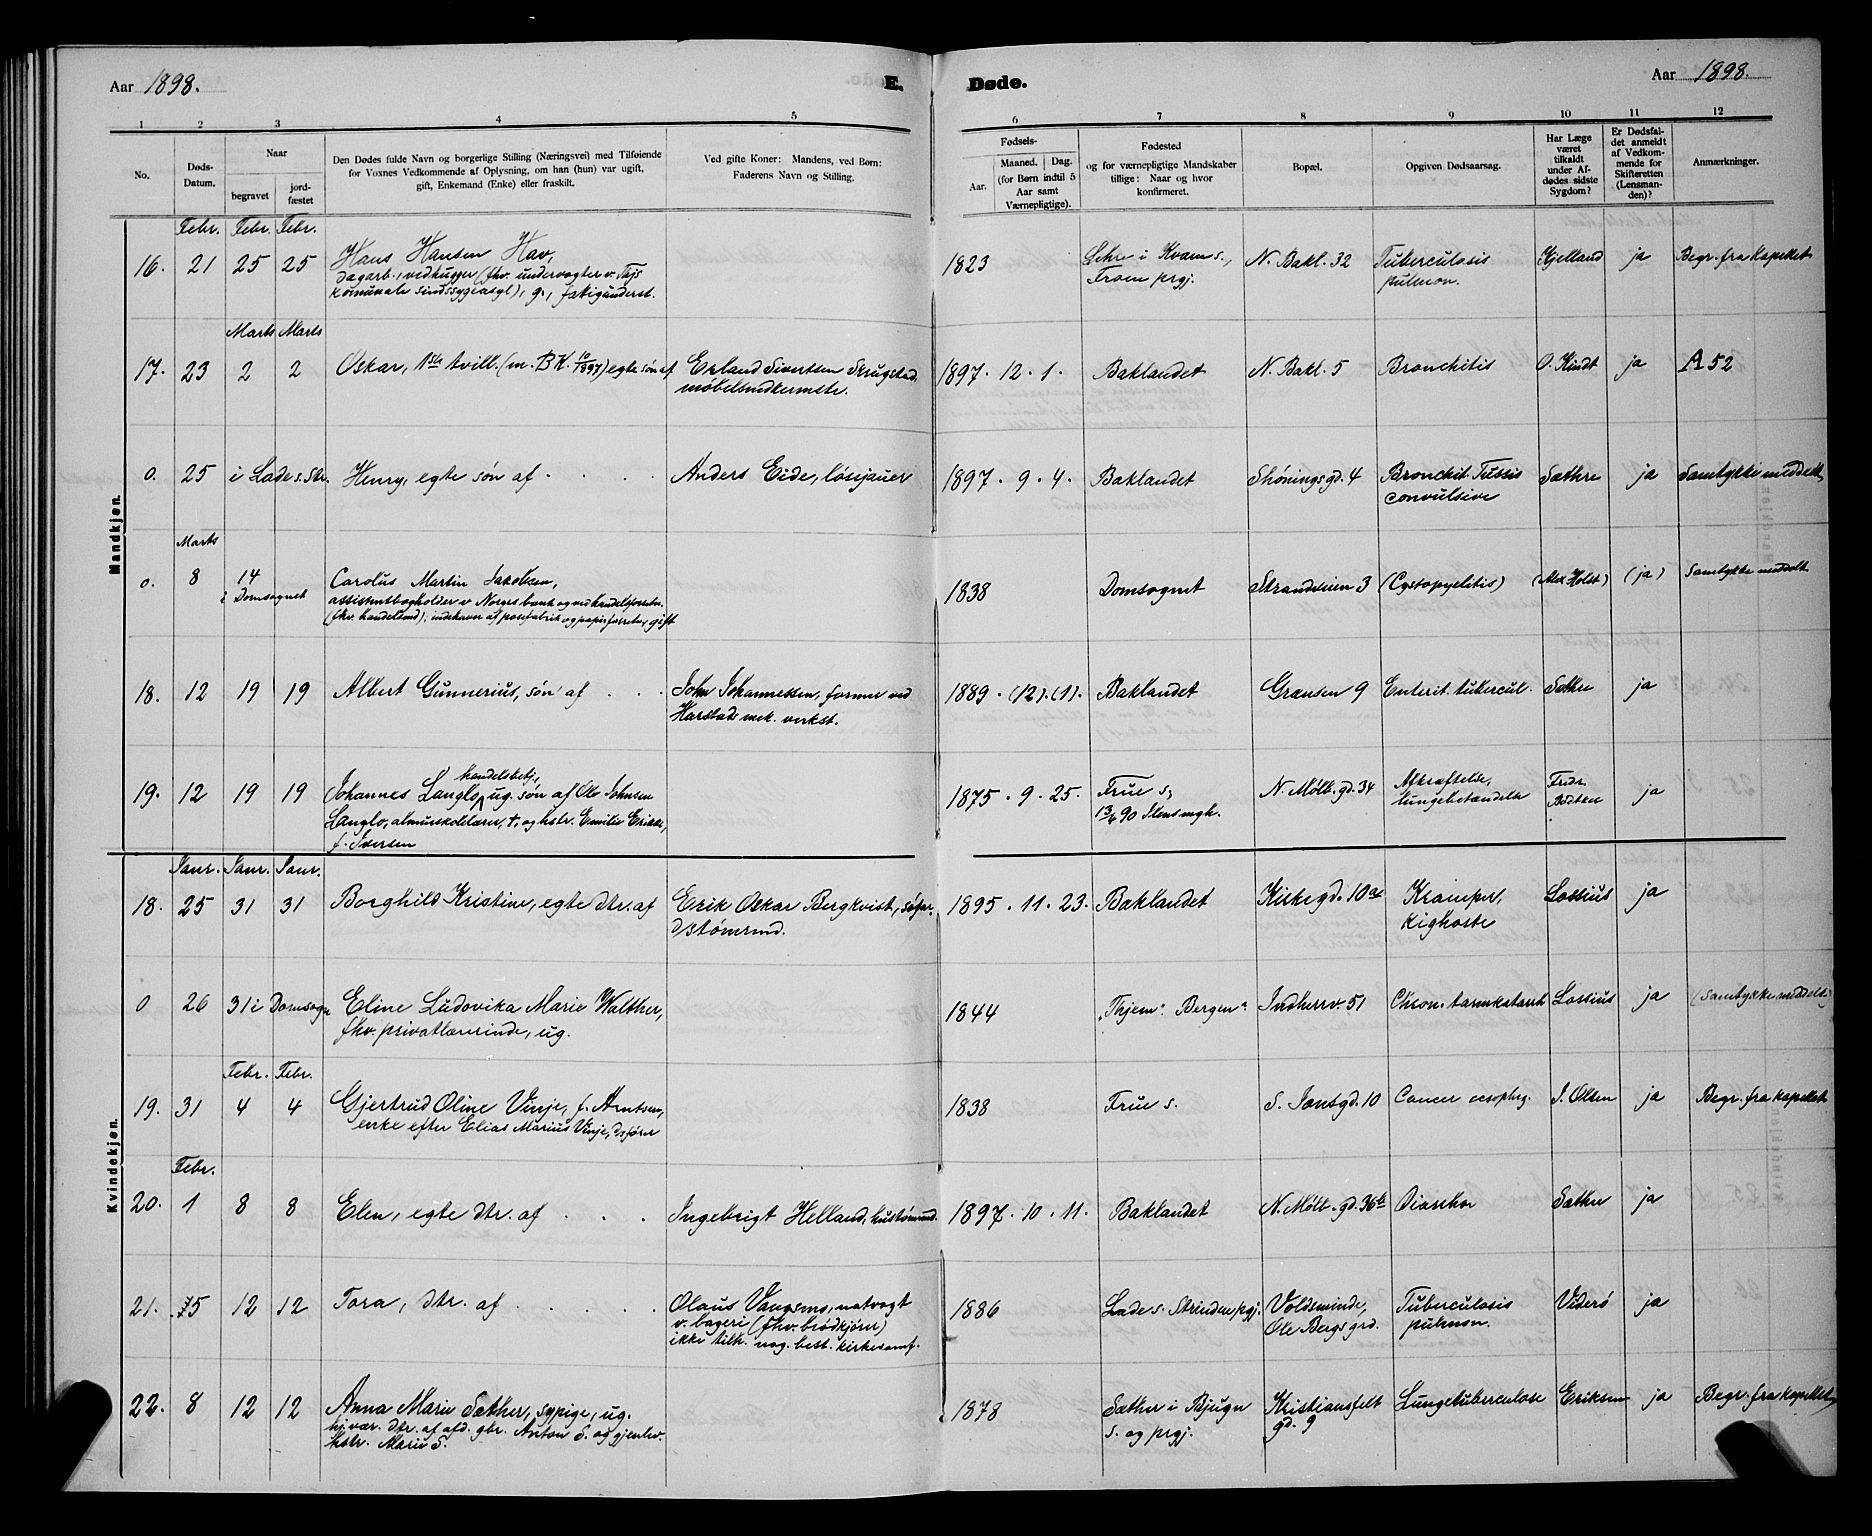 Aar 1898.
E. Døde.
Aar 1898.
1 2 3 4 5 6 7 8 9 10 11 12
No.
Døds-
Datum.
Naar
begravet
jord-
fæstet
Den Dødes fulde Navn og borgerlige Stilling (Næringsvei) med Tilføiende
for Voxnes Vedkommende af Oplysning, om han (hun) var ugift,
gift, Enkemand (Enke) eller fraskilt.
Ved gifte Koner: Mandens, ved Børn:
Faderens Navn og Stilling.
Fødsels-
Aar.
Maaned. Dag.
(for Børn indtil 5
Aar samt
Værnepligtige).
Fødested
og for værnepligtige Mandskaber
tillige: Naar og hvor
konfirmeret.
Bopæl.
Opgiven Dødsaarsag.
Har Læge
været
tilkaldt
under Af-
dødes sidste
Sygdom?
Er Dødsfal-
det anmeldt
af Vedkom-
mende for
Skifteretten
(Lensman-
den)?
Anmærkninger.
Mandkjøn.
Febr. Febr. Febr.
16. 21 25 25
Hans Hansen Hav,
dagarb., vedhugger (fhv. undervogter v. Thjs
komunale sindssygeasyl), g.,
1823
i Kvam s.,
Froen prgj.
N. Bakl. 32
Tuberculosis
pulmon.
Kjelland
ja
Begr. fra kapellet
Marts Marts
17. 23 2 2
Oskar, 1ste tvill. (m. BK. 10/1897) egte søn af
Erland Sivertsen Skrugstad,
møbelsnedkermstr.
1897. 12. 1.
Baklandet
N. Bakl. 5
Bronchitis
O. Kindt
ja
A 52
0. 25 i Lade s. Str.
Henry, egte søn af . . .
Anders Eide, løsjauer
1897. 9. 4.
Baklandet
Shøningsgd. 4
Bronchit. Tussis
convulsive
Sæthre
ja
Samtykke meddelt
Marts
0. 8 14
i Domsognet
Carolus Martin Jakobsen,
assistentbogholder v Norges bank og ved handelsforetn.
(fhv. handelsmd); indehaver af posefabrik og papirforretn., gift
1838
Domsognet
Strandveien 3
(Cystopyelitis)
(Alex Holst)
(ja)
Samtykke meddelt
18. 12 19 19
Albert Gunnerius, søn af . . .
John Johannessen, former ved
Harstads mek. verkst.
1889. (12). (1).
Baklandet
Grænsen 9
Enterit. tubercul.
Sæthre
ja
19. 12 19 19
handelsbetj.,
Johannes Langlo, ug. søn af Ole Johnsen
Langlo, almueskolelærer, †, og hstr. Emilie Erikke,
f. Iversen
1875. 9. 25.
Frue s;
13/4 90
N. Møllb. gd. 34
Afkræftelse,
lungebetændelse
Fredr.
Bødtker
ja
Kvindekjøn.
Janr. Janr. Janr.
18. 25 31 31
Borghild Kristine, egte dtr. af
Erik Oskar Bergkvist,
d/s tømrmd.
1895. 11. 23.
Baklandet
Kirkegd. 10a
Kramper,
kighoste
Lossius
ja
0 26 31 i Domsogn
Eline Ludovika Marie Walther,
fhv. privatlærerinde, ug.
1844
"Thjem" Bergen"
Indherrv. 51
Chron. tarmkatarrh
Lossius
ja
(Samtykke meddelt)
Febr. Febr.
19. 31 4 4
Gjertrud Oline Vinje, f. Arntsen,
enke efter Elias Marius Vinje, dsfører
1838
Frue s.
S. Jonsgd. 10
Cancer oesophg.
J. Olsen
ja
Begr. fra kapellet
Febr.
20. 1 8 8
Elen, egte dtr. af . . .
Ingebrigt Helland, hustømmd.
1897. 10. 11.
Baklandet
N. Møllb. gd. 36b
Diarrhoe
Sæthre
ja
21. 5 12 12
Tora, dtr. af . . . . .
Olaus Vangsmo, natvagt
v. bageri (fhv. brødkjører)
ikke tilh. nog. best. kirkesamf.
1886
Lade s. Strinden prgj.
Voldsminde,
Ole Bergs grd.
Tuberculosis
pulmon.
Viderö
ja
22. 8 12 12
Anna Marie Sæther, sypige, ug.
hjvær. dtr. af afd. gbr. Anton S. og gjenlev.
hstr. Marie S.
1878
Sæther i Bjugn
s. og prgj.
Kristiansfelt
gd. 9
Lungetuberculose
Eriksen
ja
Begr. fra kapellet